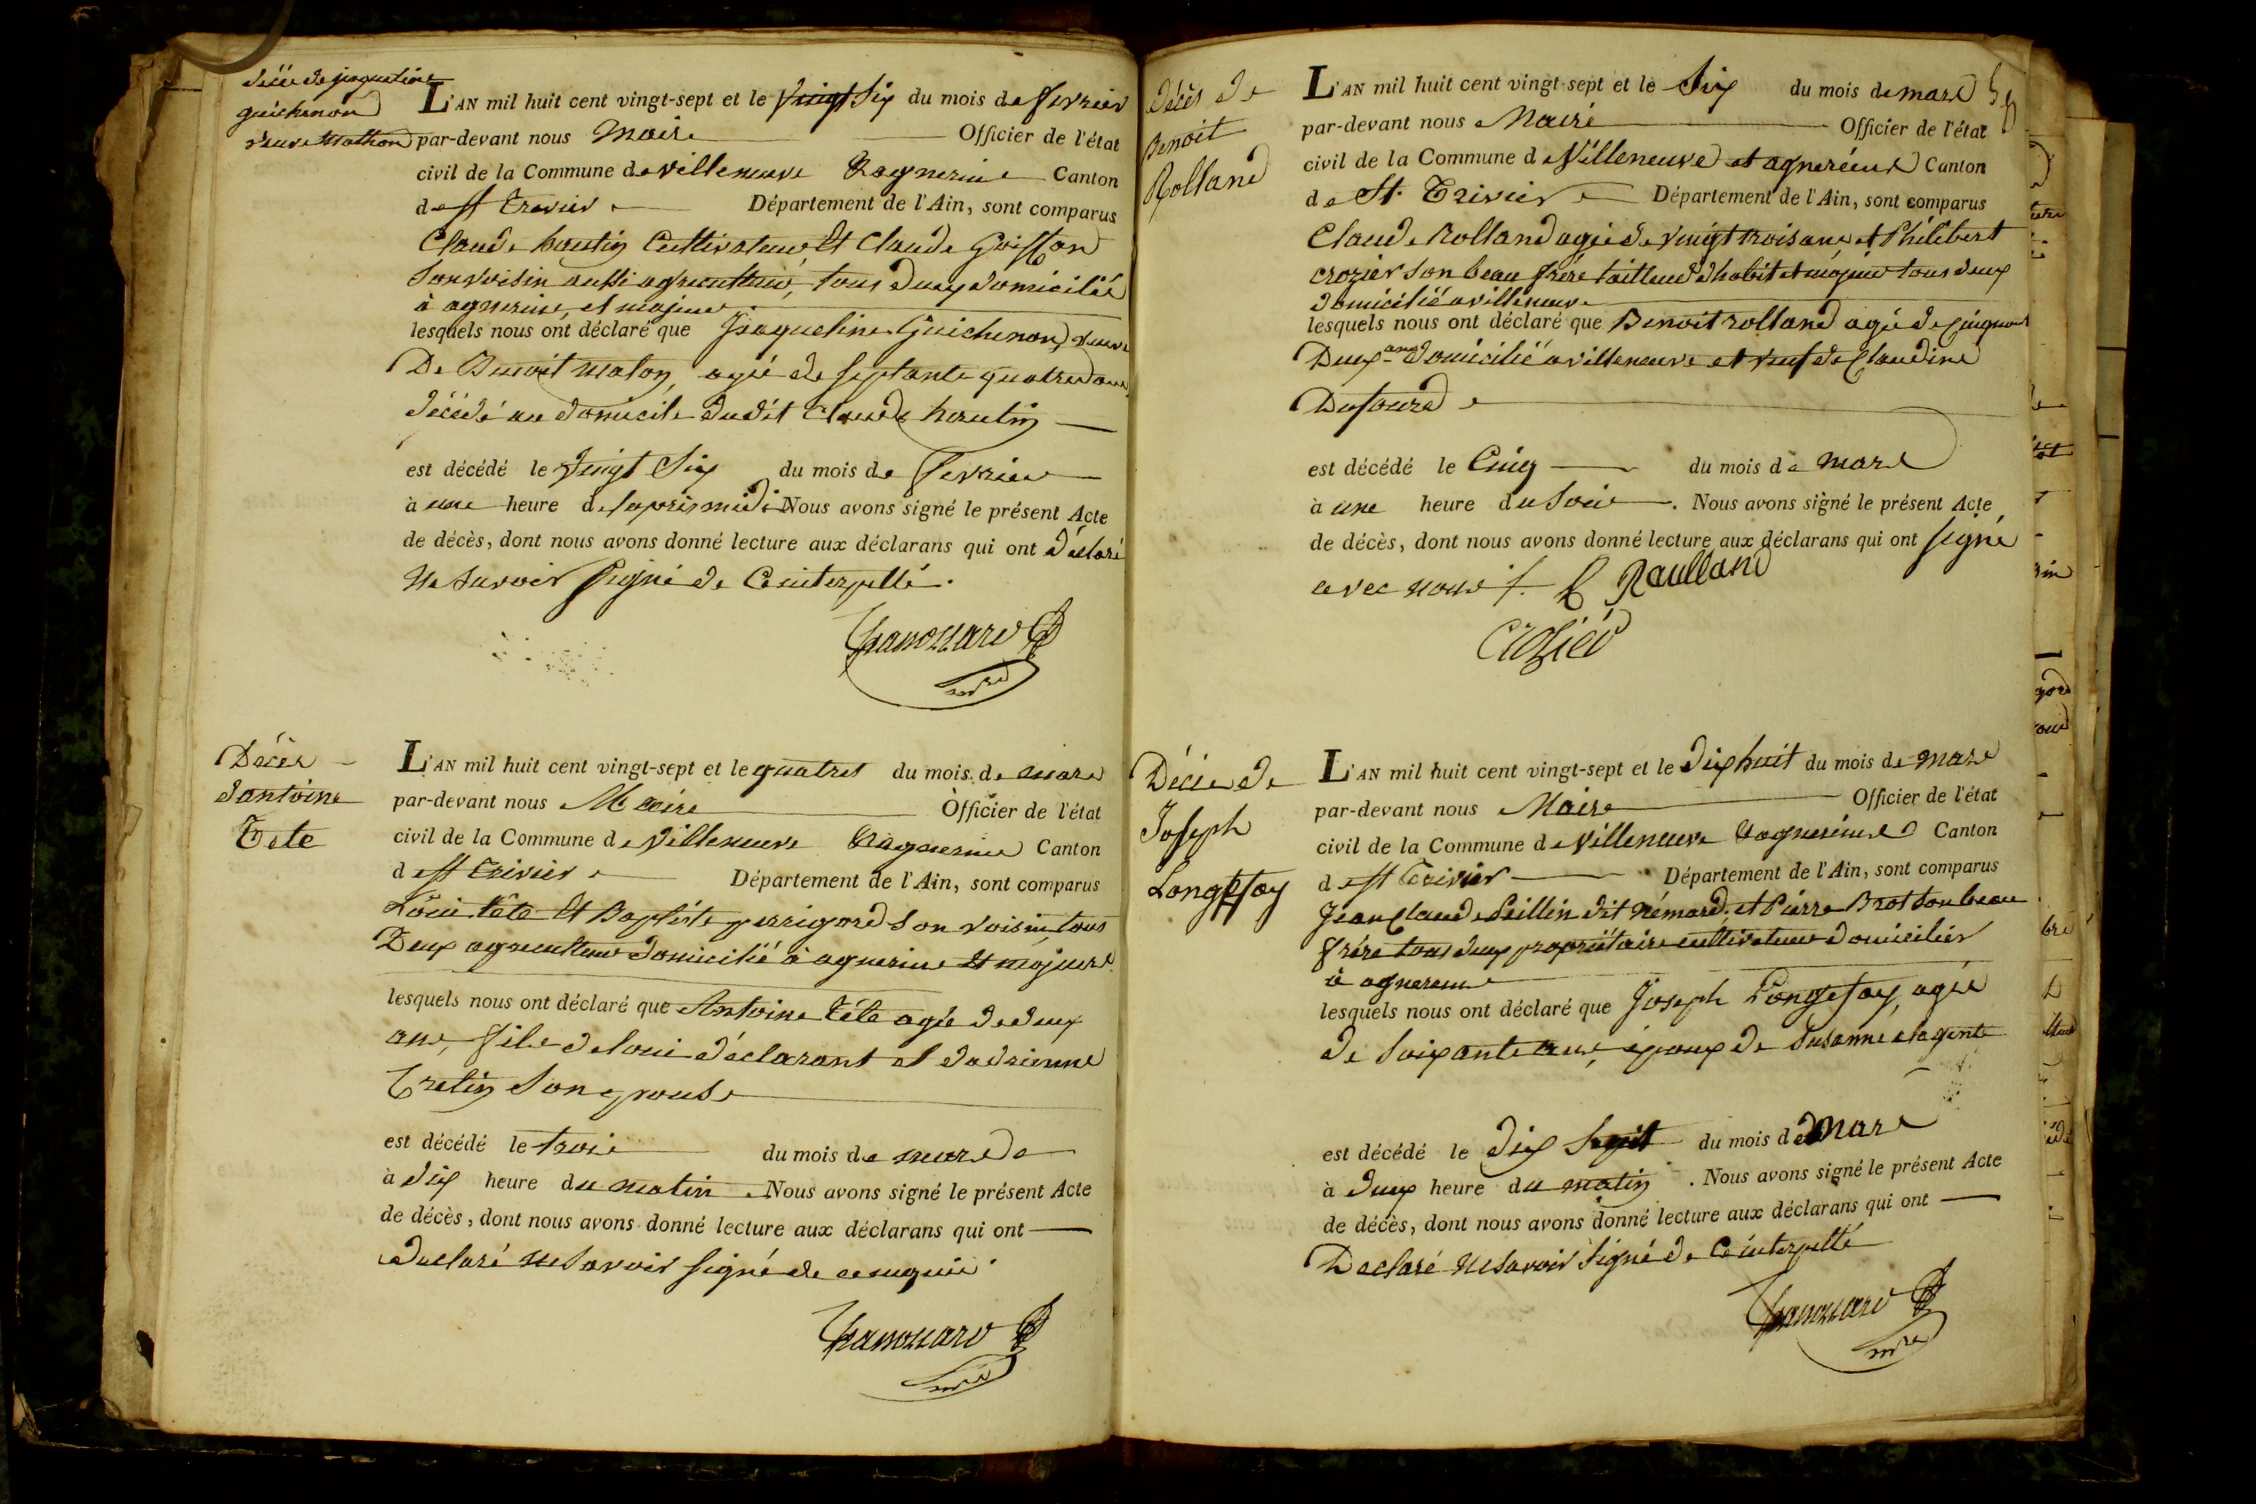 décès de jaqueline
guichenon
veuve Mathon
L'AN mil huit cent vingt-sept et le vingt Six du mois de fevrier
par-devant nous Maire Officier de l'état
civil de la Commune de villeneuve & agnerine Canton
de st Trevier Département de l'Ain, sont comparus
Claude hautin Cultivateur et Claude Goiffon
Son voisin aussi agriculteur, tous deux domicilié
à agnerine, et majeur
lesquels nous ont déclaré que Jaqueline Guichenon, veuve
De Benoit Maton, agé de septante quatre ans,
décédé au domicile dudit Claude hautin
est décédé le vingt Six du mois de fevrier
à une heure de laprès midi Nous avons signé le présent Acte
de décès, dont nous avons donné lecture aux déclarans qui ont déclaré
Ne Savoir Signé de Ce interpellé.
Décès
dantoine
Tete
L'AN mil huit cent vingt-sept et le quatres du mois de mars
par-devant nous Maire Officier de l'état
civil de la Commune de villeneuve & agnerine Canton
de st Trivier Département de l'Ain, sont comparus
Loui tête et Baptiste perrigord Son voisin, tous
Deux agriculteur domicilié à agnerine et majeure
lesquels nous ont déclaré que Antoine Tête agé de deux
ans, fils de loui déclarant et dadrienne
Tretin Son epouse
est décédé le trois du mois de mars
à dix heure du matin. Nous avons signé le présent Acte
de décès, dont nous avons donné lecture aux déclarans qui ont
declaré ne Savoir signé de ce enquie
décès de
Benoit
Rolland
L'AN mil huit cent vingt-sept et le Six du mois de mars
par-devant nous Maire Officier de l'état
civil de la Commune de Villeneuve et agnereins Canton
de St. Trivier Département de l'Ain, sont comparus
Claude Rolland agé de vingt trois ans et Philibert
crozier Son beau frère tailleur d'habit et majeur tous deux
domicilié a villeneuve
lesquels nous ont déclaré que Benoit rolland agé de Cinquante
Deux ans domicilié a villeneuve et veuf de Claudine
Dufourd
est décédé le Cinq du mois de mars
à une heure du Soir. Nous avons signé le présent Acte
de décès, dont nous avons donné lecture aux déclarans qui ont signé
avec nous C Raulland
Crozier
Décès de
Joseph
Longefay
L'AN mil huit cent vingt-sept et le dix huit du mois de mars
par-devant nous Maire Officier de l'état
civil de la Commune de villeneuve & agnereins Canton
de st Trivier Département de l'Ain, sont comparus
Jean Claude Peillin dit Némard, et Pierre Brot Son beau
frère tous deux propriétaire cultivateur domiciliés
à agnereins
lesquels nous ont déclaré que Joseph Longefay, agée
de Soixante ans, époux de Susanne Lagente
est décédé le dix Sept du mois de Mars
à deux heure du matin. Nous avons signé le présent Acte
de décès, dont nous avons donné lecture aux déclarans qui ont
Declaré ne Savoir Signé de Ce interpellé